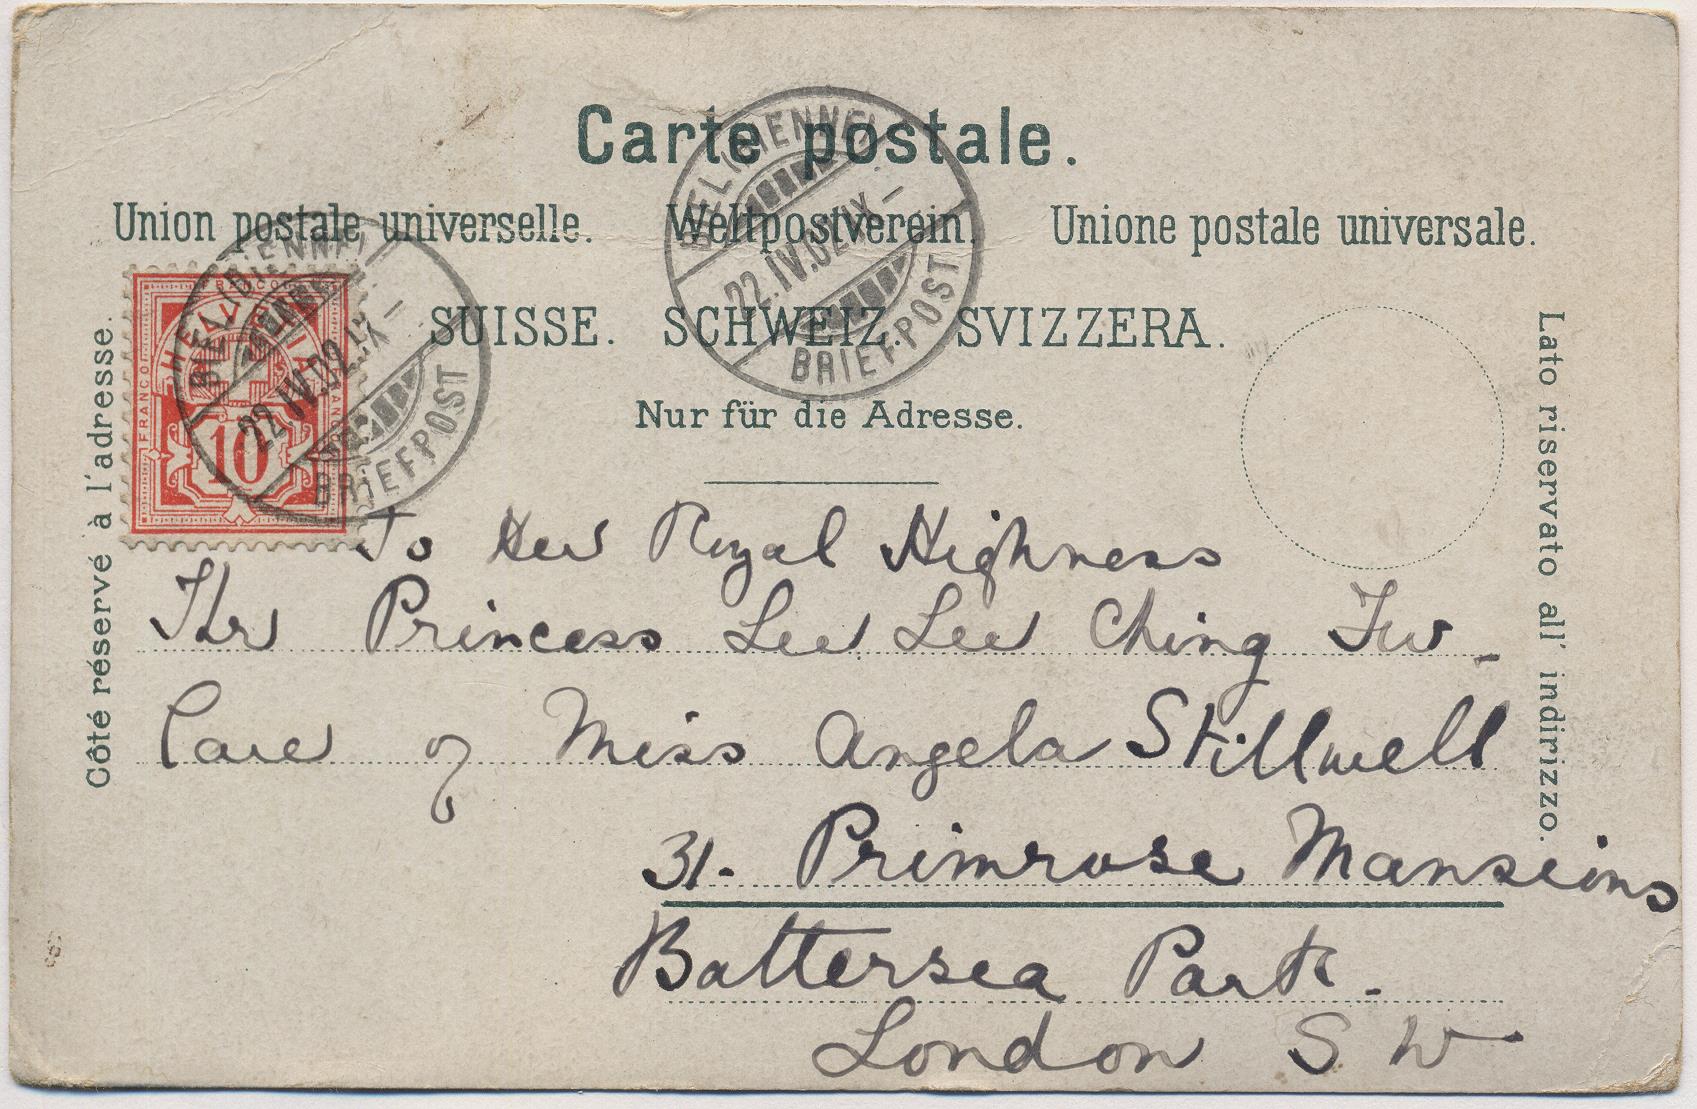 Carte postale.
Union postale universelle. Weltpostverein. Unione postale universale.
SUISSE. SCHWEIZ. SVIZZERA.
Nur für die Adresse.
Côté réservé à l'adresse.
Lato riservato all' indirizzo.
BIEL (BIENNE)
22.IV.02.IX-
BRIEFPOST
BIEL (BIENNE)
22.IV.02.IX-
BRIEFPOST
FRANCO
HELVETIA
FRANCO
10
To Her Royal Highness
The Princess Lee Lee Ching Fu -
Care of Miss Angela Stillwell
31. Primrose Mansions
Battersea Park -
London S W